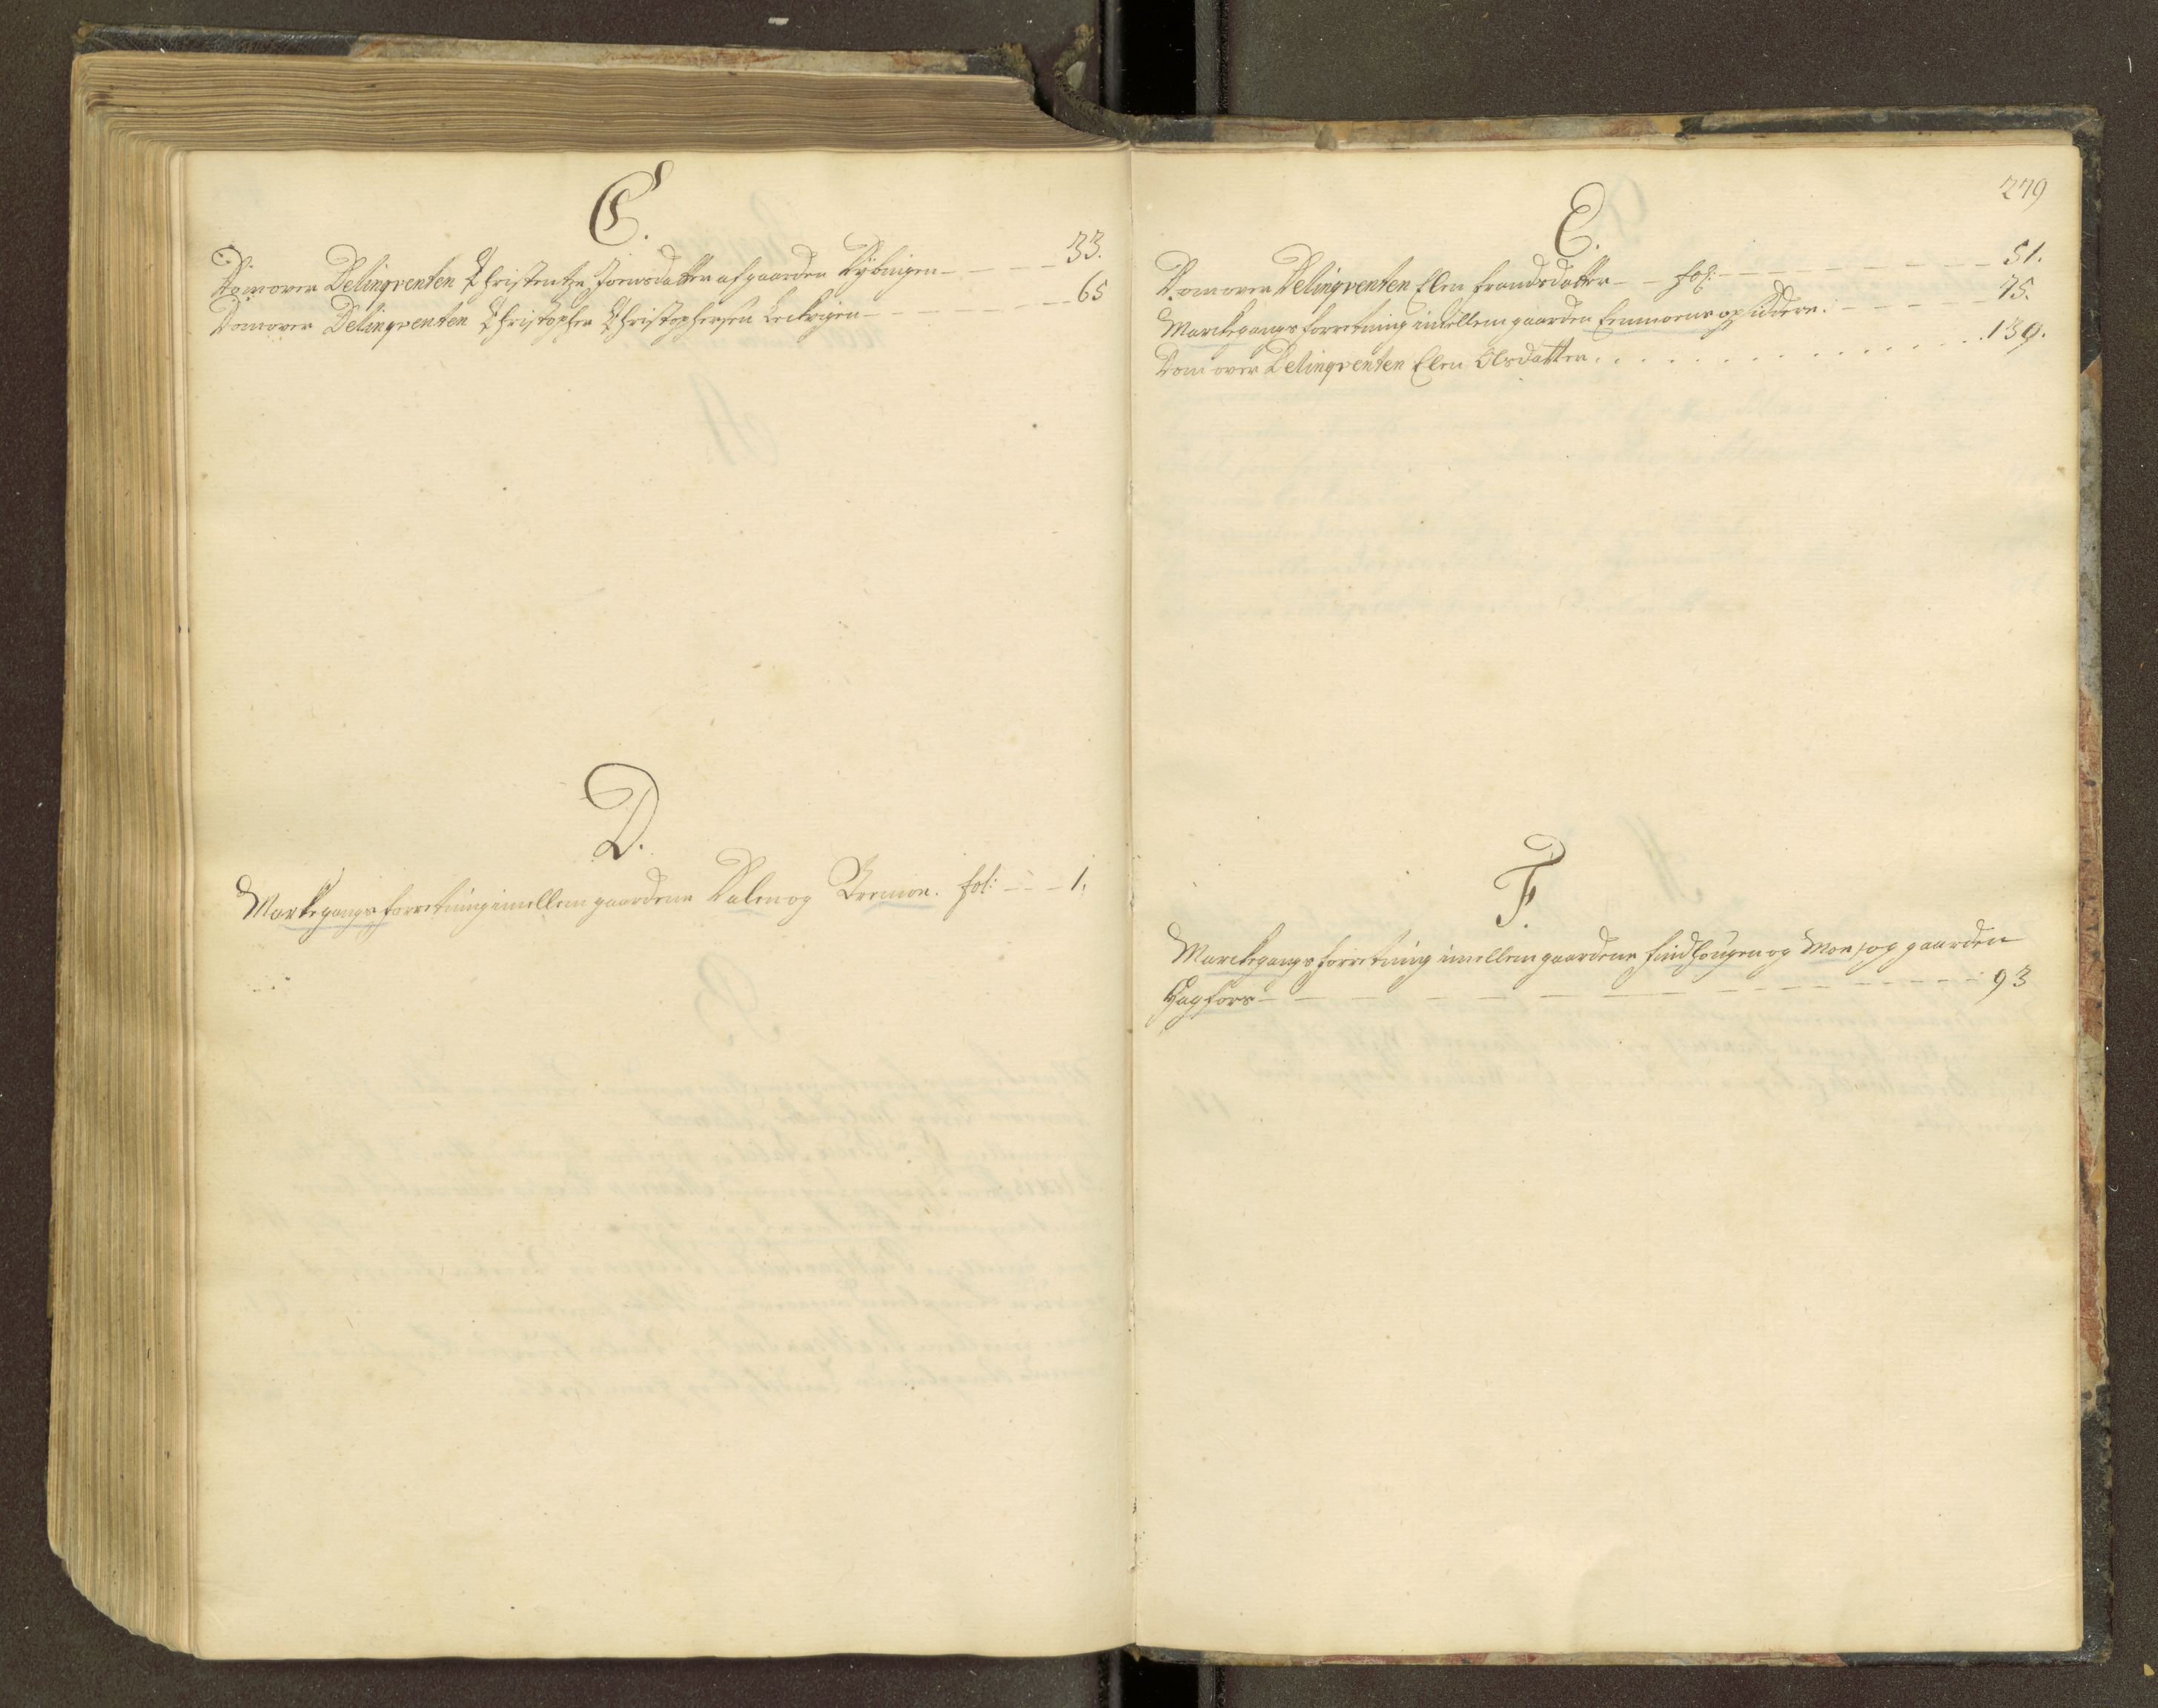 C.
Dom over Delinqventen Christentze Joensdatter af gaarden Kybvigen - - - - 33.
Dom over Delinqventen Christopher Christophersen Leikvigen - - - - - - 65
D.
Markegangs forretning imellem gaardene Dalen og Bremoe. fol: - - - 1.
279
E.
Dom over Delinqventen Elen Frandsdatter - - fol: - - - - - - - - 51.
Marckegangs forretning imellem gaarden Eenmoens opsiddere. - - - - - 75.
Dom over Delinqventen Elen Olsdatter. . . . . . . . . . . . . 139.
F.
Marckegangs forretning imellem gaardene Findhougen og Moe, og gaarden
Hagfors - - - - - - - - - - - - - - 93